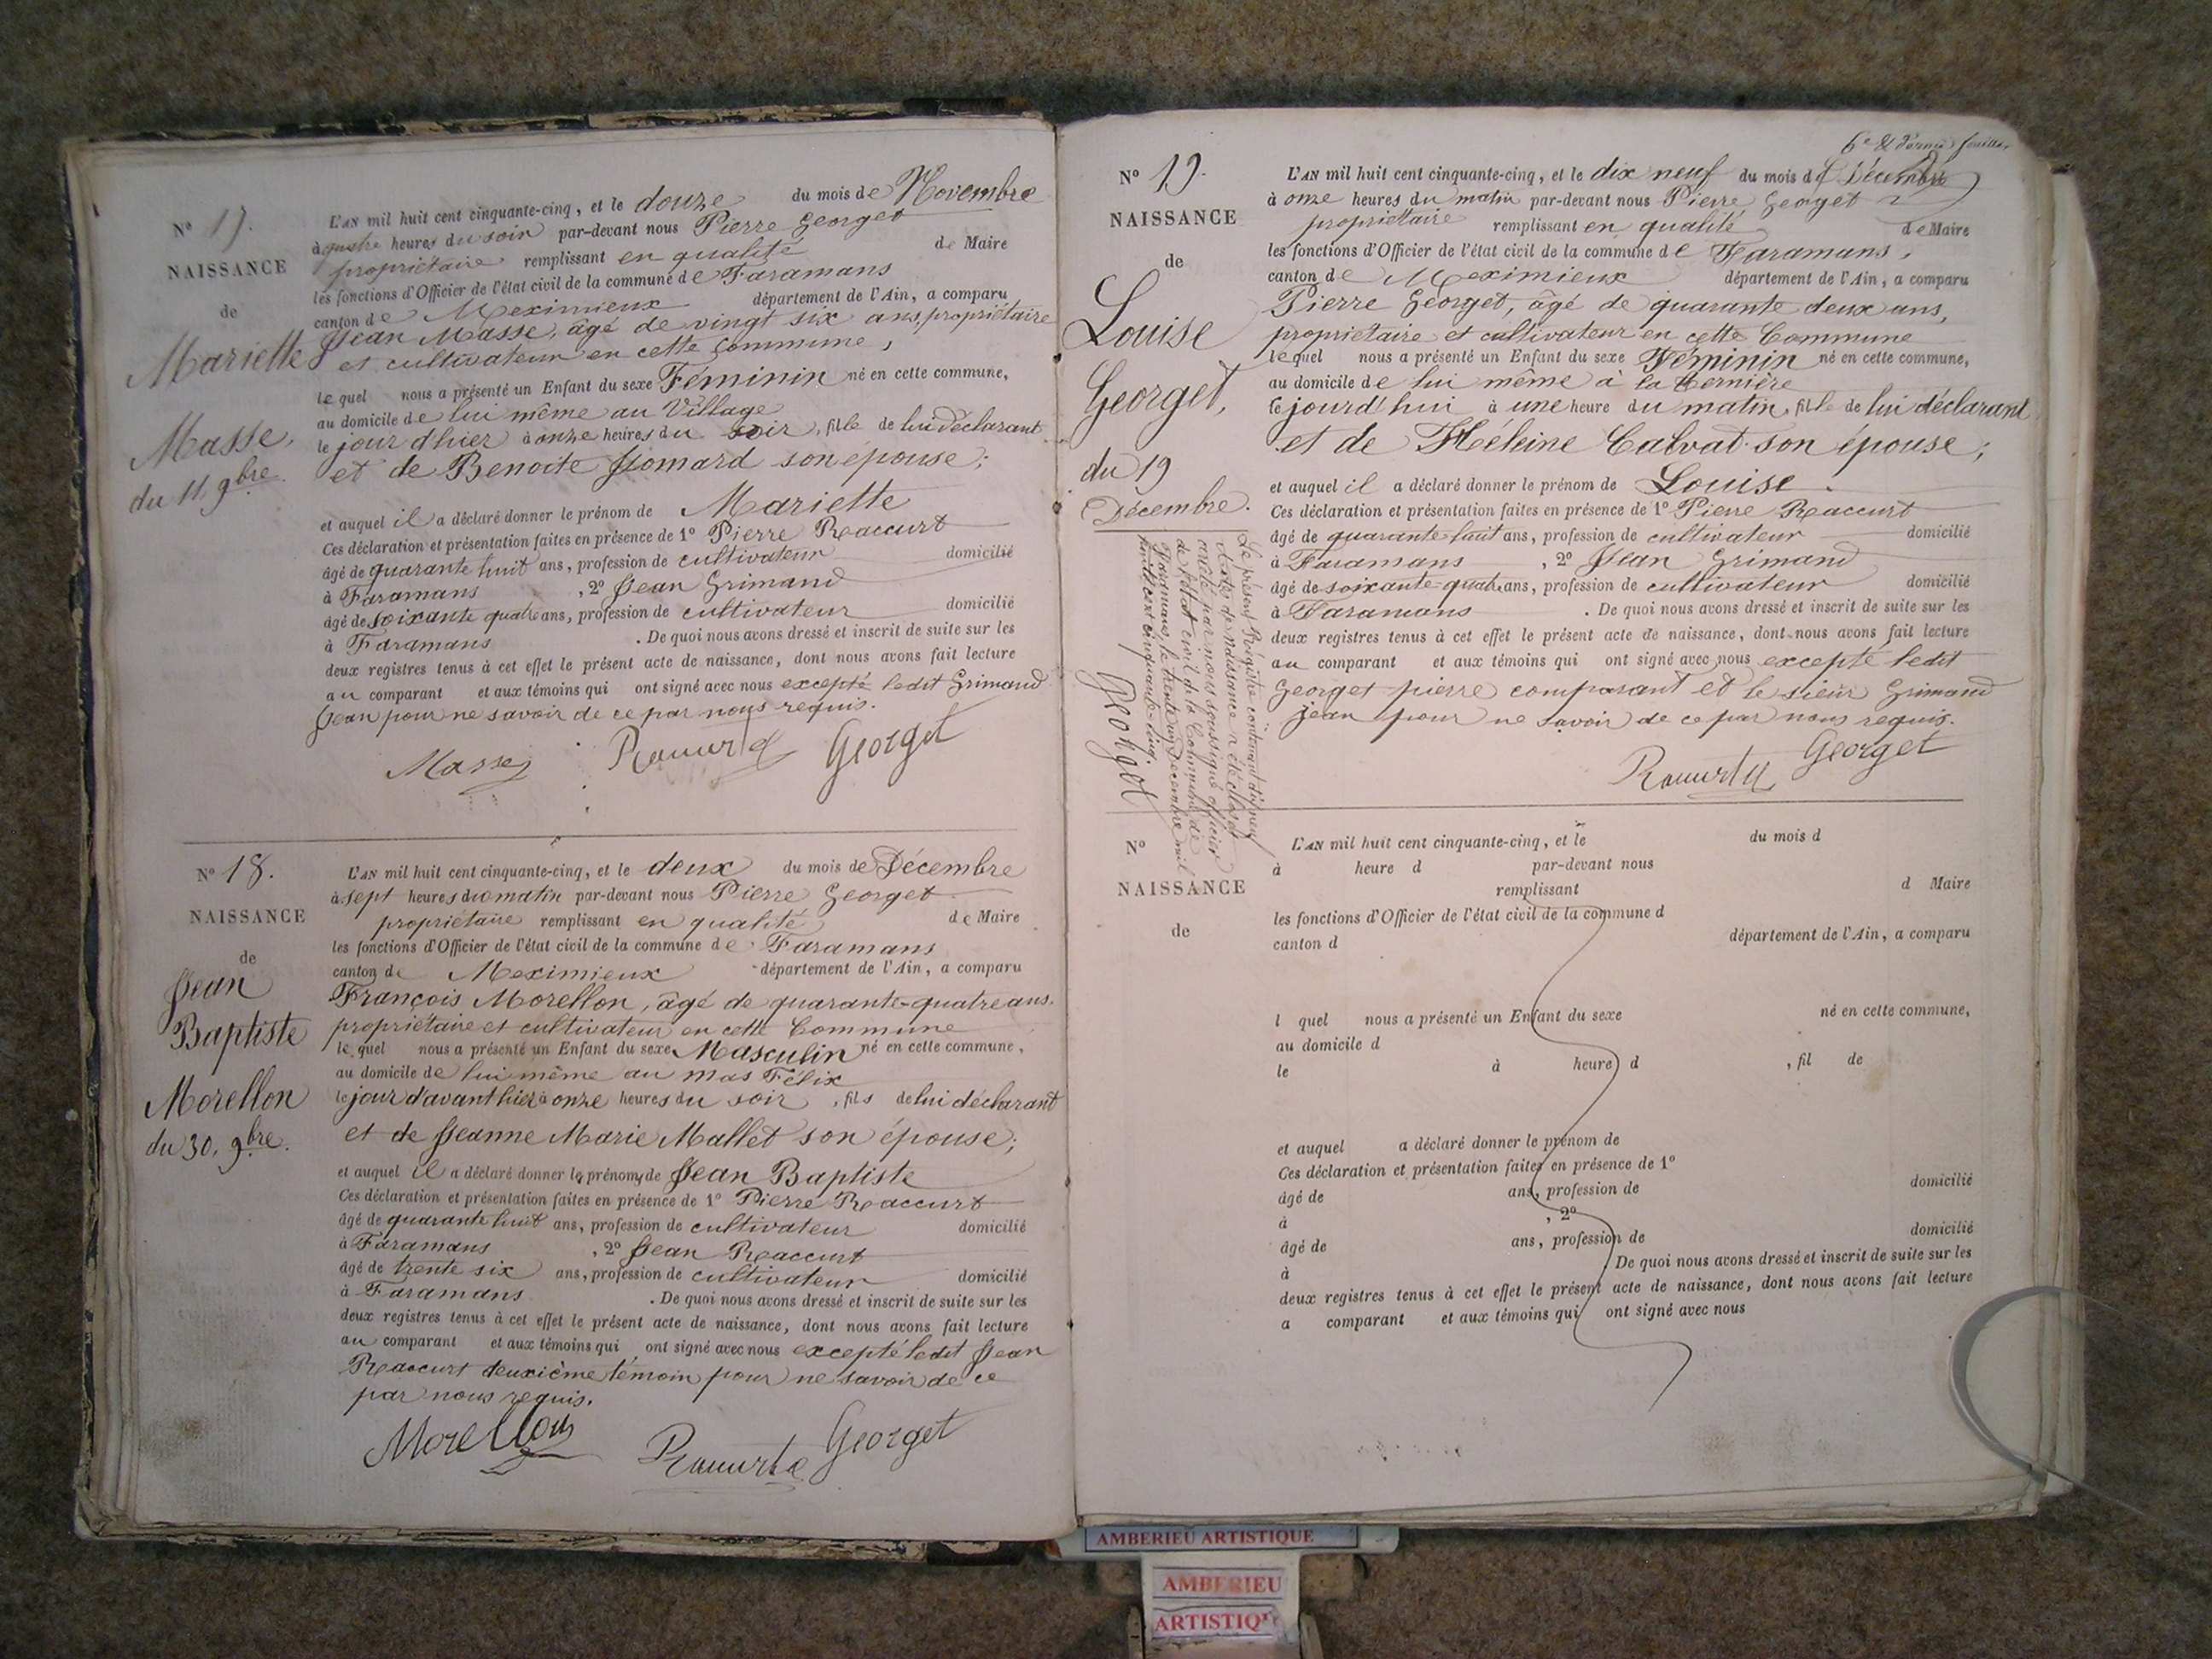 N° 17.
NAISSANCE
de
Mariette
Masse,
du 11. 9bre.
L'AN mil huit cent cinquante-cinq, et le douze du mois de Novembre
à quatre heures du soir par-devant nous Pierre Georget
propriétaire remplissant en qualité de Maire
les fonctions d'Officier de l'état civil de la commune de Faramans
canton de Meximieux département de l'Ain, a comparu
Jean Masse, âgé de vingt six ans, propriétaire
et cultivateur en cette Commune,
lequel nous a présenté un Enfant du sexe Féminin né en cette commune,
au domicile de lui même au Village
le jour d'hier à onze heures du soir, fille de lui déclarant
et de Benoite Jomard son épouse;
et auquel il a déclaré donner le prénom de Mariette
Ces déclaration et présentation faites en présence de 1° Pierre Reaccurt
âgé de quarante huit ans, profession de cultivateur domicilié
à Faramans, 2° Jean Grimand
âgé de soixante quatre ans, profession de cultivateur domicilié
à Faramans. De quoi nous avons dressé et inscrit de suite sur les
deux registres tenus à cet effet le présent acte de naissance, dont nous avons fait lecture
au comparant et aux témoins qui ont signé avec nous excepté ledit Grimand
Jean pour ne savoir de ce par nous requis.
Masse Georget
N° 18.
NAISSANCE
de
Jean
Baptiste
Morellon
du 30. 9bre.
L'AN mil huit cent cinquante-cinq, et le deux du mois de Décembre
à sept heures du matin par-devant nous Pierre Georget
propriétaire remplissant en qualité de Maire
les fonctions d'Officier de l'état civil de la commune de Faramans
canton de Meximieux département de l'Ain, a comparu
François Morellon, âgé de quarante-quatre ans.
propriétaire et cultivateur en cette Commune
lequel nous a présenté un Enfant du sexe Masculin né en cette commune,
au domicile de lui même au mas Félix
le jour d'avant hier à onze heures du soir, fils de lui déclarant
et de Jeanne Marie Mallet son épouse;
et auquel il a déclaré donner les prénoms de Jean Baptiste
Ces déclaration et présentation faites en présence de 1° Pierre Reaccurt
âgé de quarante huit ans, profession de cultivateur domicilié
à Faramans, 2° Jean Reaccurt
âgé de trente six ans, profession de cultivateur domicilié
à Faramans. De quoi nous avons dressé et inscrit de suite sur les
deux registres tenus à cet effet le présent acte de naissance, dont nous avons fait lecture
au comparant et aux témoins qui ont signé avec nous excepté ledit Jean
Reaccurt deuxième témoin pour ne savoir de ce
par nous requis.
Morellon Georget
6e & dernier feuillet
N° 19.
NAISSANCE
de
Louise
Georget,
du 19
Décembre.
L'AN mil huit cent cinquante-cinq, et le dix neuf du mois de Décembre
à onze heures du matin par-devant nous Pierre Georget
propriétaire remplissant en qualité de Maire
les fonctions d'Officier de l'état civil de la commune de Faramans,
canton de Meximieux département de l'Ain, a comparu
Pierre Georget, âgé de quarante deux ans,
propriétaire et cultivateur en cette Commune
lequel nous a présenté un Enfant du sexe Féminin né en cette commune,
au domicile de lui même à la
le jourd'hui à une heure du matin, fille de lui déclarant
et de Héleine Calvat son épouse;
et auquel il a déclaré donner le prénom de Louise.
Ces déclaration et présentation faites en présence de 1° Pierre Reaccurt
âgé de quarante huit ans, profession de cultivateur domicilié
à Faramans, 2° Jean Grimand
âgé de soixante-quatre ans, profession de cultivateur domicilié
à Faramans. De quoi nous avons dressé et inscrit de suite sur les
deux registres tenus à cet effet le présent acte de naissance, dont nous avons fait lecture
au comparant et aux témoins qui ont signé avec nous excepté ledit
Georget pierre comparant et le sieur Grimand
jean pour ne savoir de ce par nous requis.
Georget
Le présent Registre contenant dix neuf
actes de naissance a été clos et
arrêté par nous soussigné officier
de l'état civil de la Commune de
Faramans, le trente un Décembre mil
huit cent cinquante-cinq.
Georget
N°
NAISSANCE
de
L'AN mil huit cent cinquante-cinq, et le du mois d
à heure d par-devant nous
remplissant d Maire
les fonctions d'Officier de l'état civil de la commune d
canton d département de l'Ain, a comparu
l quel nous a présenté un Enfant du sexe né en cette commune,
au domicile d
le à heure d , fil de
et auquel a déclaré donner le prénom de
Ces déclaration et présentation faites en présence de 1°
âgé de ans, profession de domicilié
à , 2°
âgé de ans, profession de domicilié
à . De quoi nous avons dressé et inscrit de suite sur les
deux registres tenus à cet effet le présent acte de naissance, dont nous avons fait lecture
a comparant et aux témoins qui ont signé avec nous
AMBERIEU ARTISTIQUE
AMBERIEU
ARTISTIQ